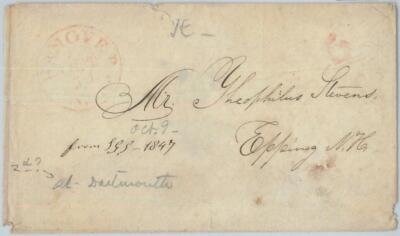 HANOVER
Mr. Theophilus Stevens.
Epping N.H.
Oct. 9 -
from SGS - 1847
2d?
at Dartmouth